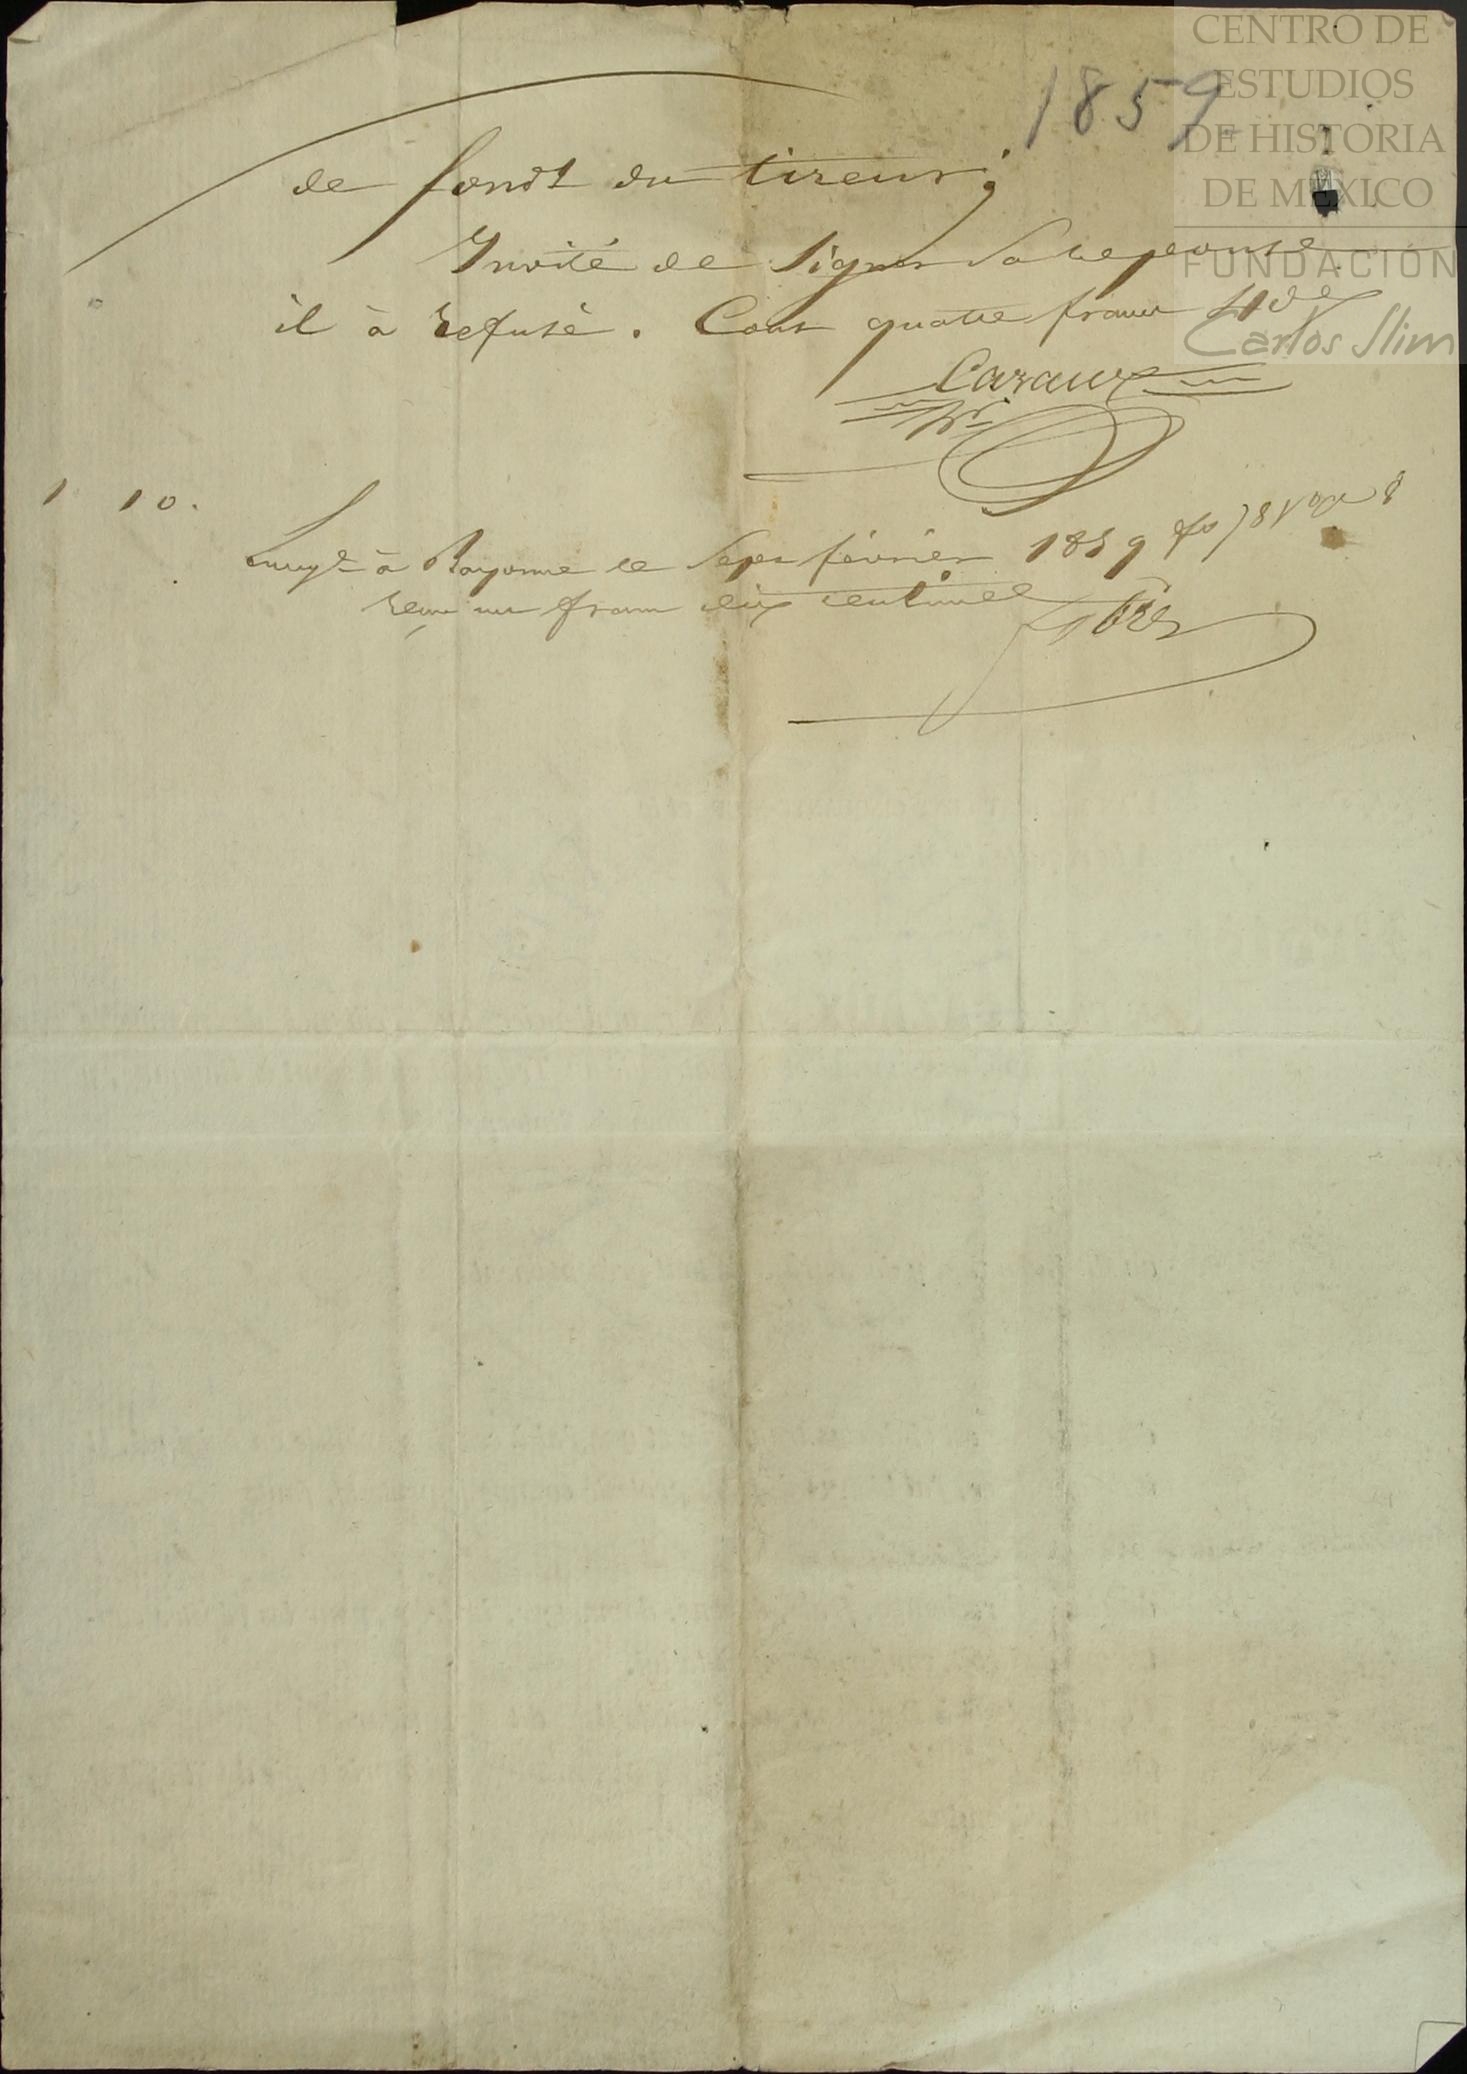 CENTRO DE
ESTUDIOS
DE HISTORIA
DE MÉXICO
FUNDACIÓN
Carlos Slim
1859
de fonds du tireur;
Invité de signer sa reponse
il à refusé. Cout quatre francs
Cazaux
1 10.
à Bayonne le sept février 1859 fo 78 Vo 8
reçu un franc dix centimes